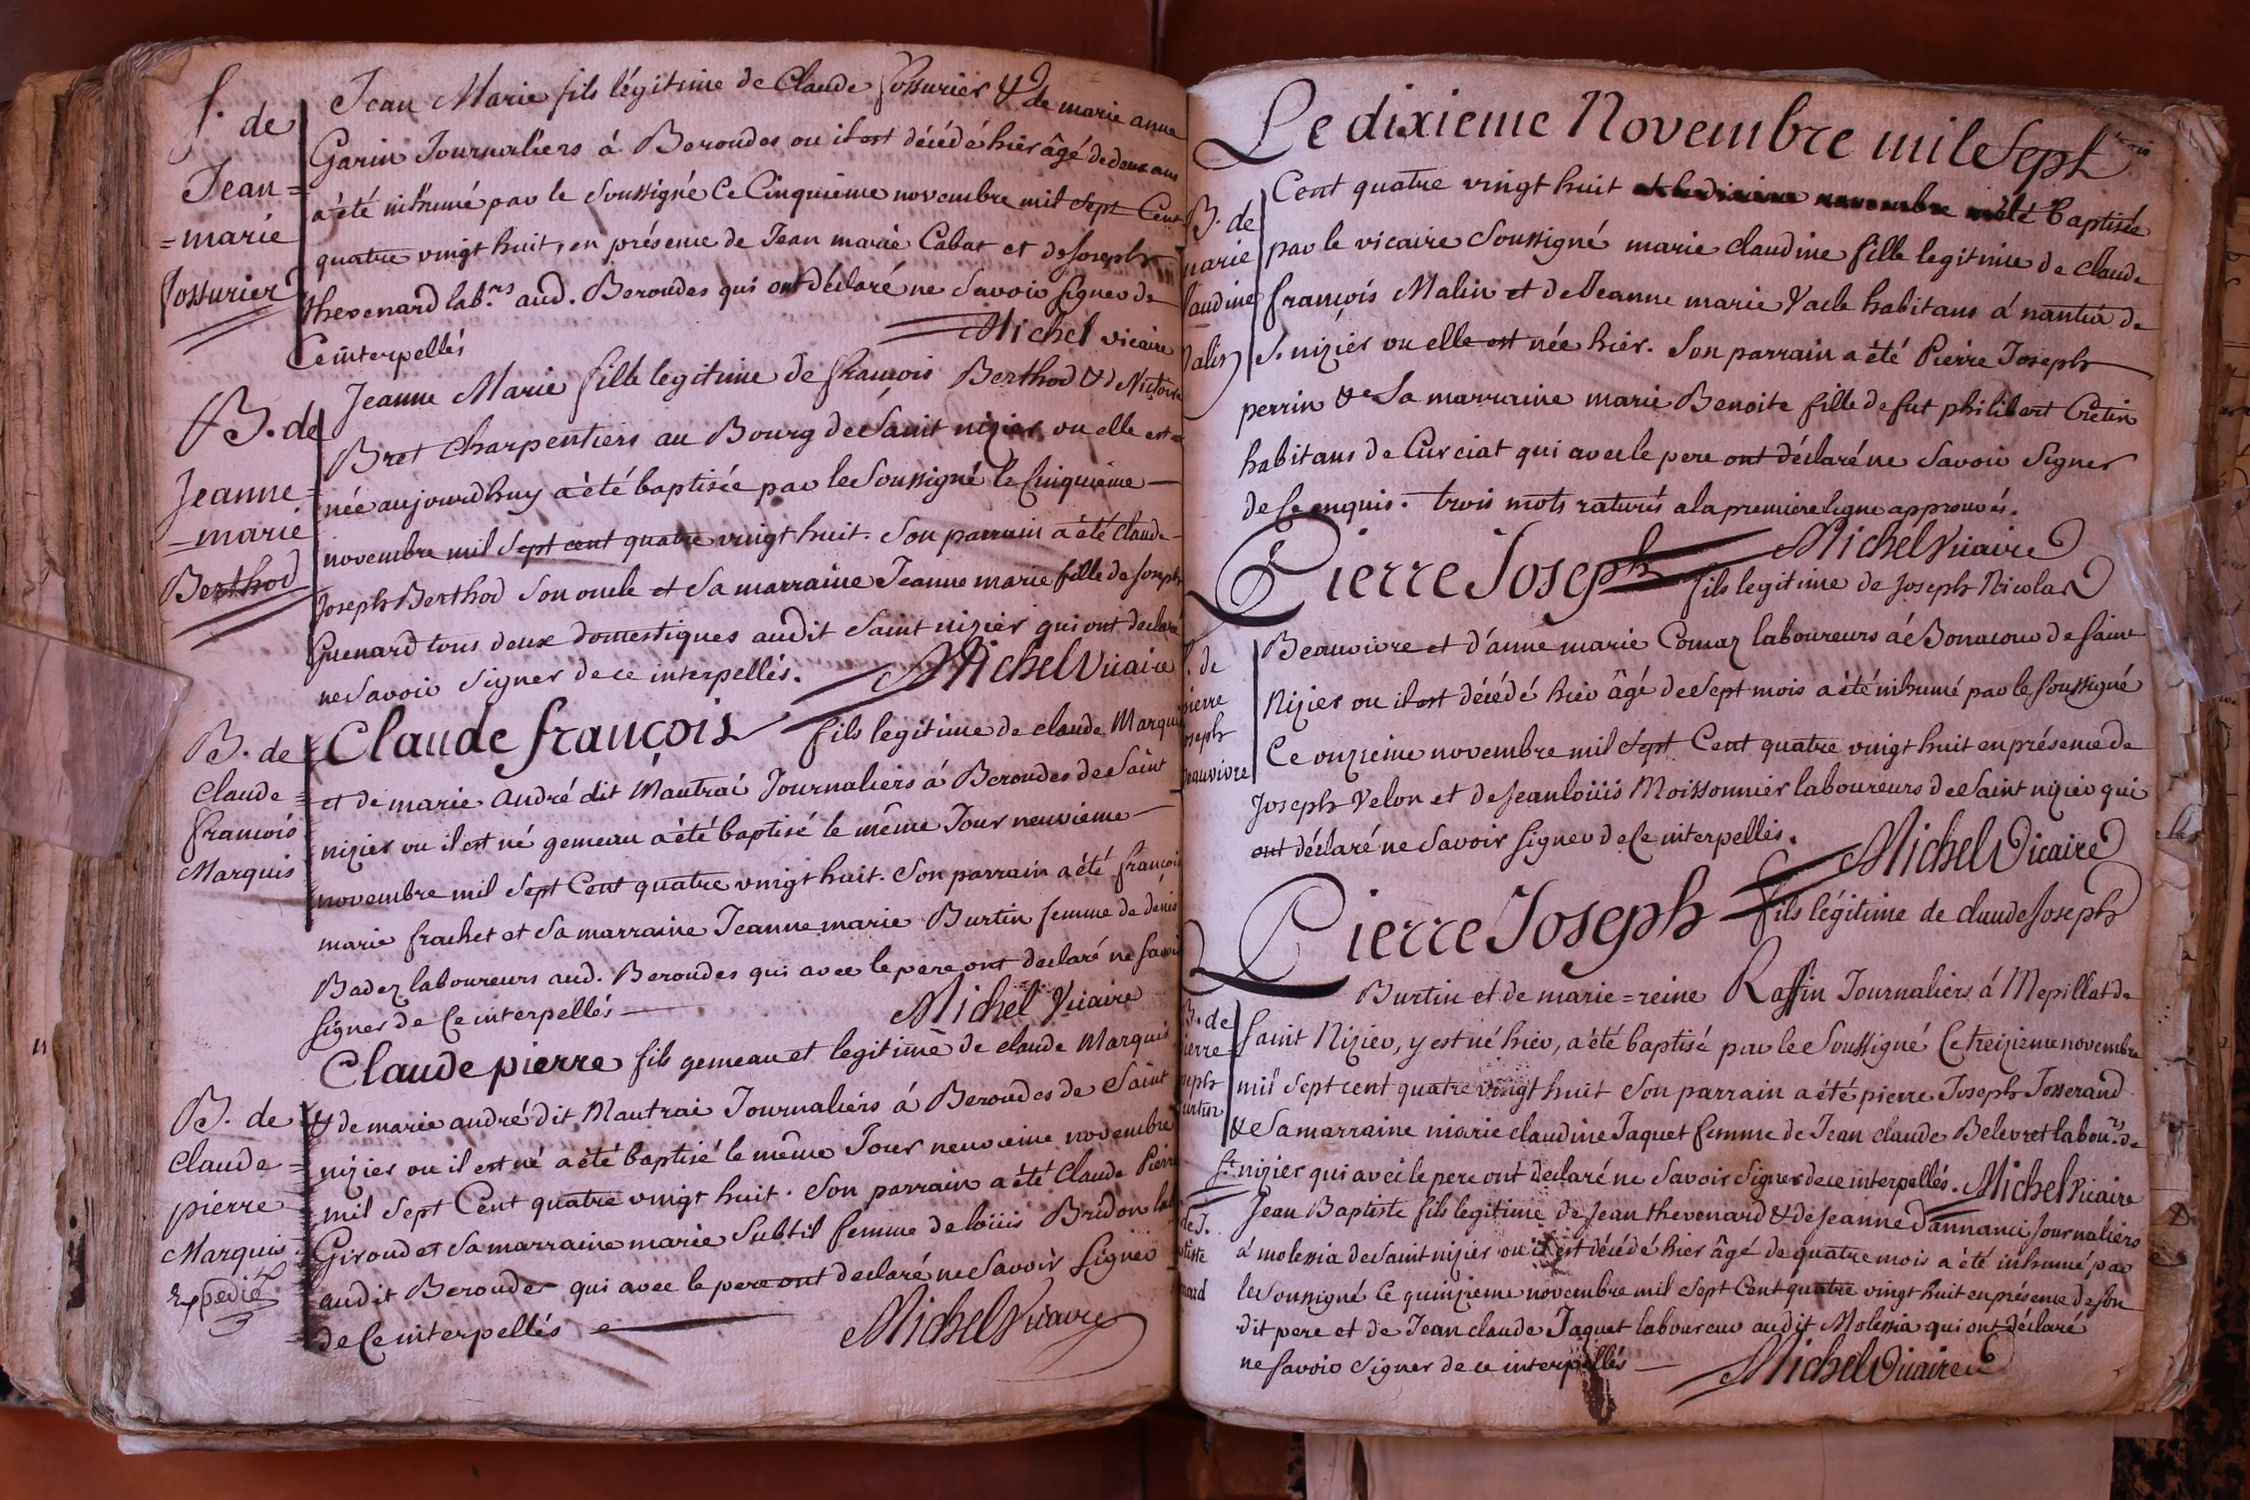 S. de
Jean =
= marie
Fossurier
Jean Marie fils légitime de Claude fossurier & de marie anne
Garin Journaliers à Beroudes ou il est décédé hier âgé de deux ans
a été inhumé par le soussigné Ce Cinquieme novembre mil sept Cent
quatre vingt huit, en présence de Jean marie Cabat et de Joseph
thevenard lab.rs aud. Beroudes qui ont déclaré ne savoir signer de
Ce interpellés
Michel vicaire
B. de
Jeanne =
= marie
Berthod
Jeanne Marie fille legitime de francois Berthod & de Victoire
Bret charpentiers au Bourg de saint nizier ou elle est
née aujourdhuy a été baptisée par le soussigné le Cinquieme
novembre mil sept cent quatre vingt huit. Son parrain a été Claude
Joseph Berthod son oncle et sa marraine Jeanne marie fille de Joseph
Guenard tous deux domestiques audit saint nizier qui ont declaré
ne savoir signer de ce interpellés.
Michel Vicaire
B. de
Claude =
francois
Marquis
Claude françois fils legitime de claude Marquis
et de marie andré dit Mautrai Journaliers à Beroudes de saint
nizier ou il est né gemeau a été baptisé le même Jour neuvieme
novembre mil sept Cent quatre vingt huit. Son parrain a été francois
marie frachet et sa marraine Jeanne marie Burtin femme de denis
Badez laboureurs aud. Beroudes qui avec le pere ont declaré ne savoir
signer de Ce interpellés
Michel Vicaire
B. de
Claude =
pierre
Marquis
Expedié
Claude pierre fils gemeau et legitime de claude Marquis
& de marie andré dit Mautrai Journaliers à Beroudes de saint
nizier ou il est né a été baptisé le même Jour neuvieme novembre
mil sept Cent quatre vingt huit. Son parrain a été Claude Pierre
Giroud et sa marraine marie Subtil femme de loüis Bridon lab
audit Beroudes qui avec le pere ont declaré ne savoir signer
de Ce interpellés
Michel Vicaire
Le dixieme Novembre mil Sept
B. de
marie
laudine
Malin
Cent quatre vingt huit a été baptisée
par le vicaire soussigné marie claudine fille legitime de claude
françois Malin et de Jeanne marie Vacle habitans à nantua de
S. nizier ou elle est née hier. Son parrain a été Pierre Joseph
perrin & sa marraine marie Benoite fille de fut philibert Cretin
habitans de Curciat qui avec le pere ont déclaré ne savoir signer
de Ce enquis. trois mots raturés a la premiere ligne approuvés.
Michel Vicaire
S. de
pierre
oseph
eauvivre
Pierre Joseph fils legitime de Joseph Nicolas
Beauvivre et d'anne marie Comaz laboureurs à Bonacour de saint
Nizier ou il est décédé hier âgé de sept mois a été inhumé par le soussigné
Ce onzieme novembre mil sept Cent quatre vingt huit en présence de
Joseph Velon et de Jean loüis Moissonnier laboureurs de saint nizier qui
ont déclaré ne savoir signer de Ce interpellés.
Michel Vicaire
B. de
ierre
oseph
urtin
Pierre Joseph fils légitime de claude Joseph
Burtin et de marie = reine Raffin Journaliers à Mepillat de
saint Nizier, y est né hier, a été baptisé par le soussigné le treizieme novembre
mil sept cent quatre vingt huit son parrain a été pierre Joseph Josserand
& sa marraine marie claudine Jaquet femme de Jean claude Belevret labour.s de
St nizier qui avec le pere ont declaré ne savoir signer de ce interpellés. Michel Vicaire
de J.
tiste
nard
Jean Baptiste fils legitime de Jean thevenard & de Jeanne Dannanci Journaliers
à molessia de saint nizier ou il est décédé hier âgé de quatre mois a été inhumé par
le soussigné Ce quinzieme novembre mil sept Cent quatre vingt huit en présence de son
dit pere et de Jean claude Jaquet laboureur audit Molessia qui ont déclaré
ne savoir signer de ce interpellés
Michel Vicaire